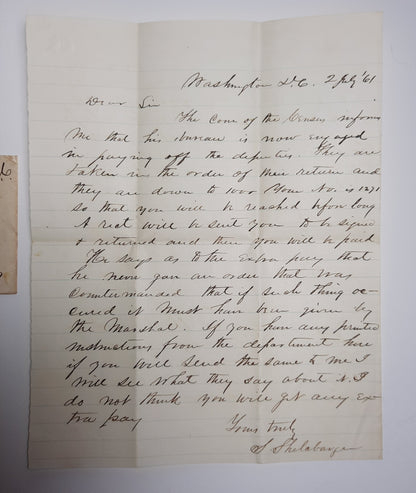 Washington D.C. 2 July '61
Dear Sir
The Com of the Census informs
me that his bureau is now engaged
in paying off the deputies. They are
taken in the order of their return and
they are down to 1000 Your No. is 1271
so that you will be reached before long
A rect will be sent you to be signed
& returned and then you will be paid
He says as to the Extra pay that
he never gave an order that was
countermanded that if such thing oc-
cured it must have been given by
the Marshal. If you have any printed
instructions from the department here
if you will send the same to me I
will see what they say about it. I
do not think you will get any Ex-
tra pay
Yours truly
S Shellabarger